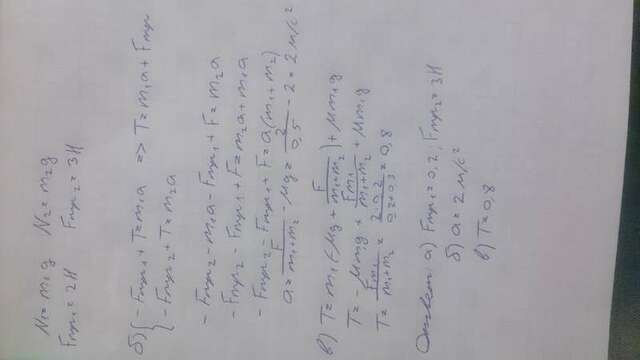 N₁ = m₁g N₂ = m₂g
Fтр₁ = 2Н Fтр₂ = 3Н
б) { -Fтр₁ + T = m₁a => T = m₁a + Fтр₁
-Fтр₂ + T = m₂a
-Fтр₂ - m₁a - Fтр₁ + F = m₂a
-Fтр₂ - Fтр₁ + F = m₂a + m₁a
-Fтр₂ - Fтр₁ + F = a(m₁ + m₂)
a = F/(m₁ + m₂) - μg = 2/0,5 - 2 = 2 м/с²
в) T = m₁(-μg + F/(m₁ + m₂)) + μm₁g
T = -μm₁g + Fm₁/(m₁ + m₂) + μm₁g
T = Fm₁/(m₁ + m₂) = 2·0,2/(0,2+0,3) = 0,8
Ответ: а) Fтр₁ = 0,2, Fтр₂ = 3Н
б) a = 2 м/с²
в) T = 0,8